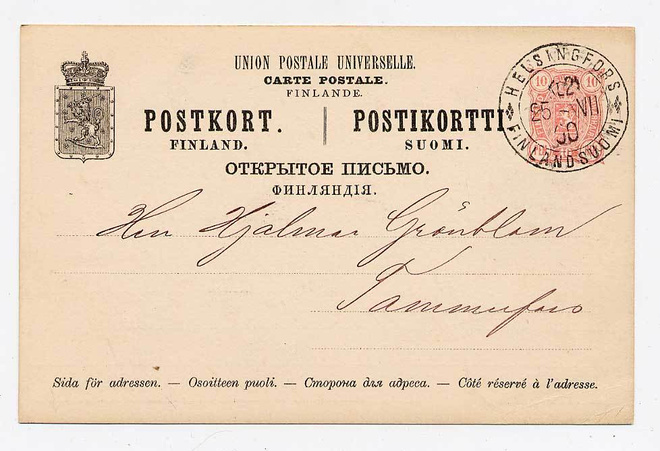 UNION POSTALE UNIVERSELLE.
CARTE POSTALE.
FINLANDE.
POSTKORT. | POSTIKORTTI
FINLAND. SUOMI.
ОТКРЫТОЕ ПИСЬМО.
ФИНЛЯНДІЯ.
10 10
HELSINGFORS
KL21
25-VII
90
FINLAND SUOMI
Herr Hjalmar Grönblom
Tammerfors
Sida för adressen. — Osoitteen puoli. — Сторона для адреса. — Côté réservé à l'adresse.